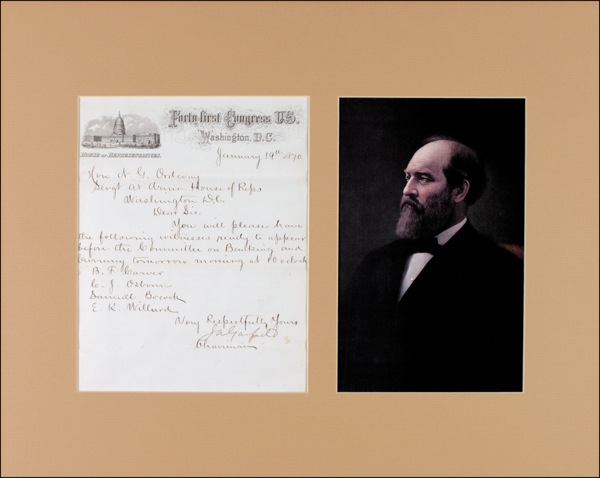 Forty-first Congress U.S.
Washington, D.C.
HOUSE OF REPRESENTATIVES.
January 19th 1870.
Hon N. G. Ordway
Sergt at Arms House of Reps
Washington D.C.
Dear Sir.
You will please have
the following witnesses ready to appear
before the Committee on Banking and
Currency tomorrow morning at 10 o'clock
B. F. Carver
C. J. Osborn
Samuel Bocock
E. K. Willard
Very Respectfully Yours
J A Garfield
Chairman